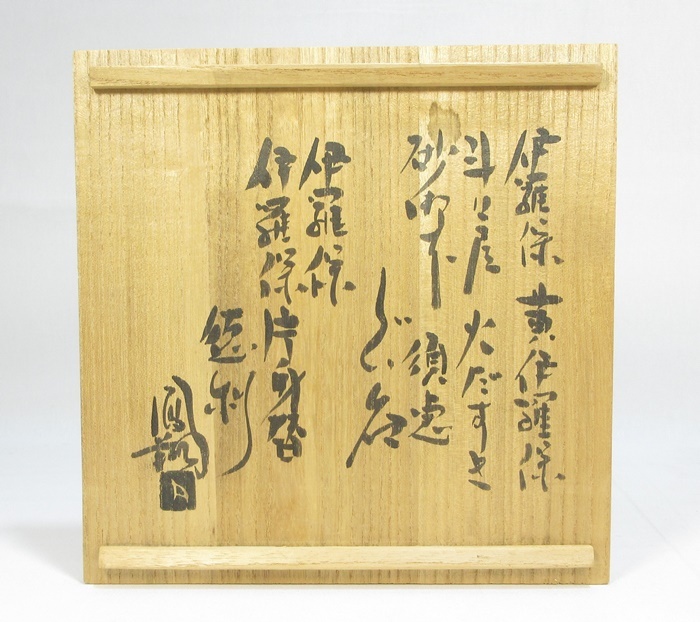 伊羅保 黄伊羅保
斗々屋 火だすき
砂御本 須恵
ぐい呑
伊羅保
伊羅保片身替
徳利